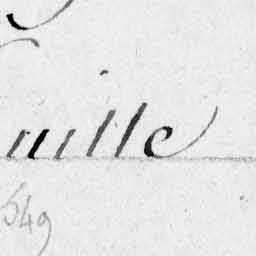 uille
549